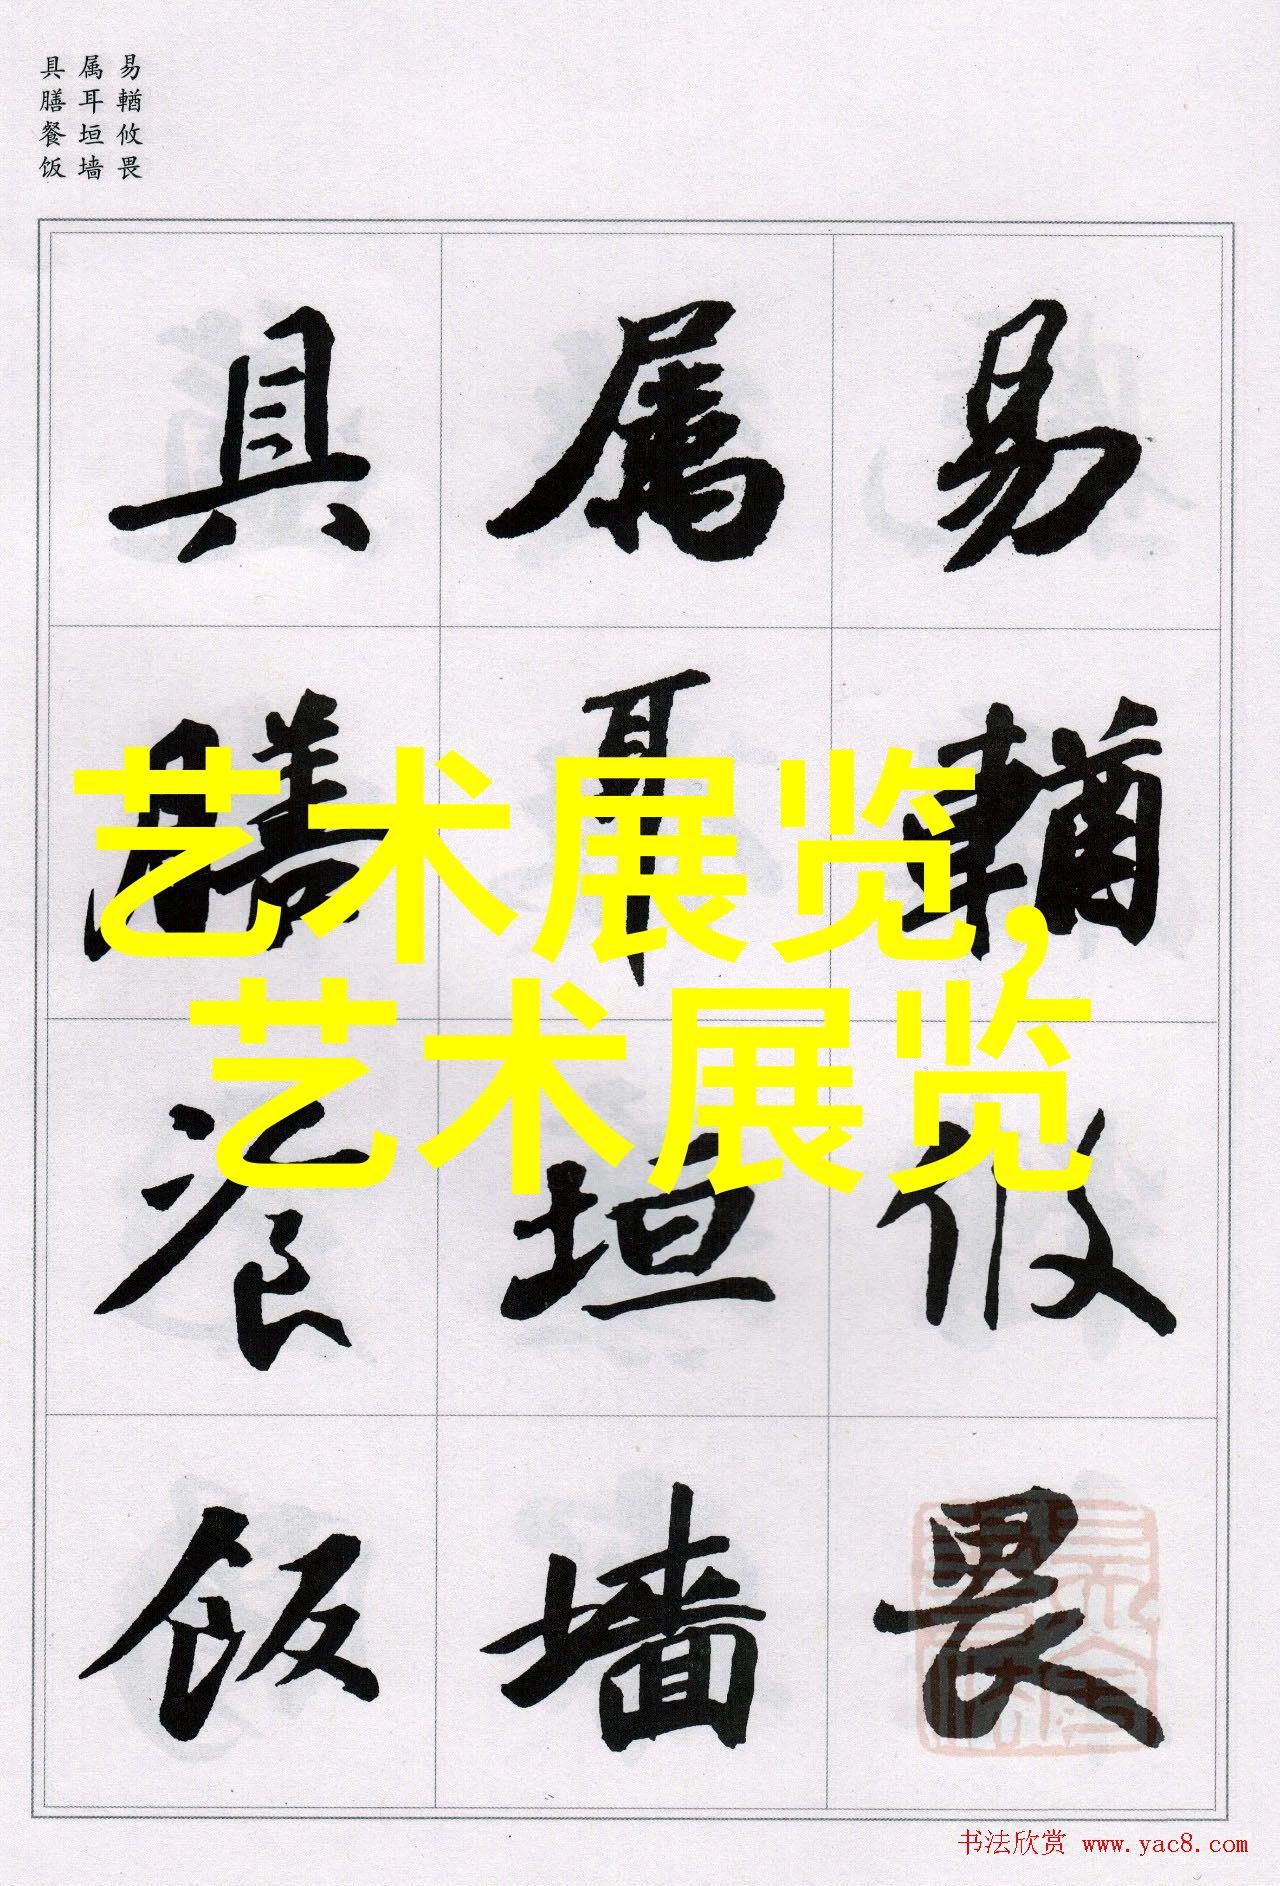 易輶攸畏
属耳垣墙
具膳餐饭
艺术展览,
艺术展览
易輶攸畏
属耳垣墙
具膳飡饭
书法欣赏 www.yac8.com